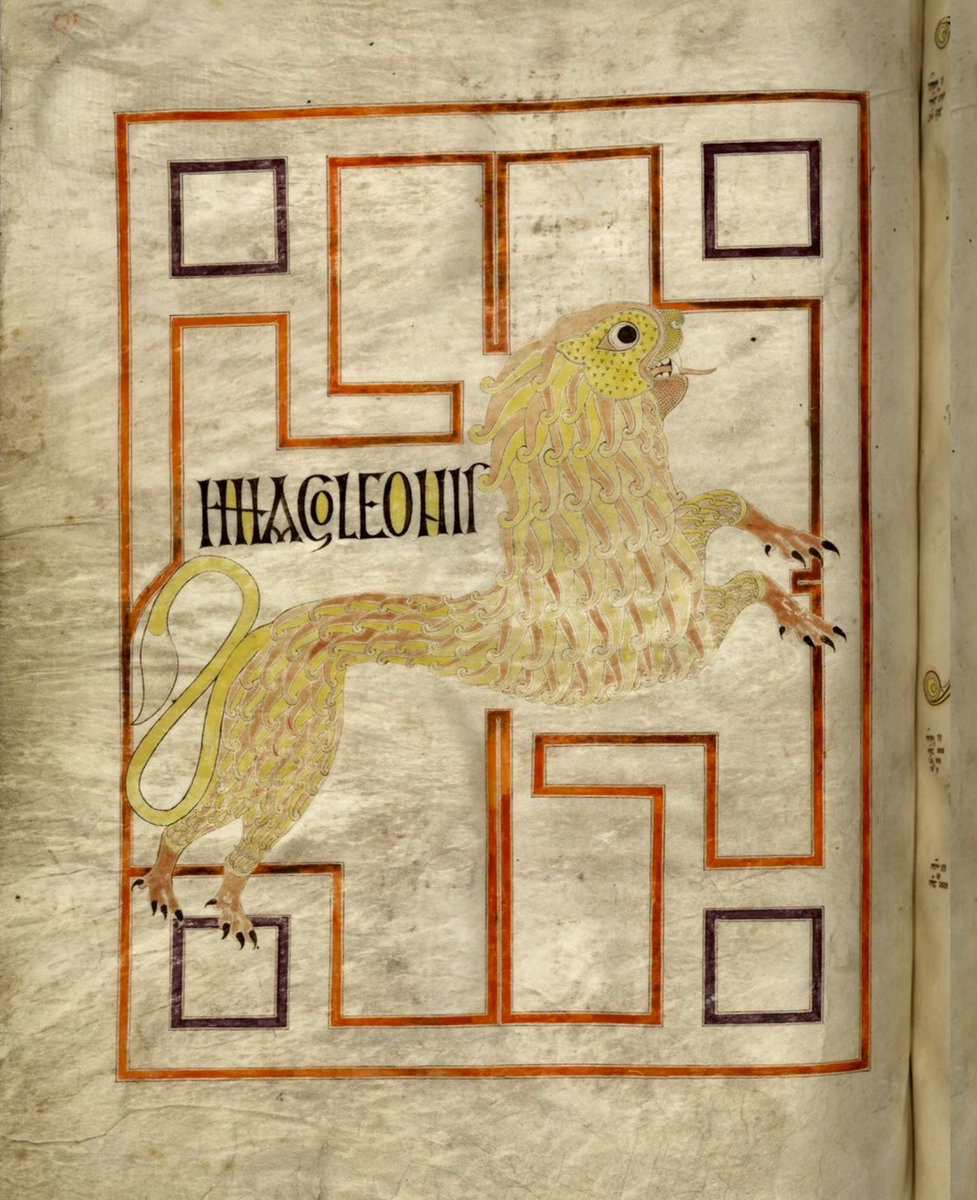 IMAGO LEONIS